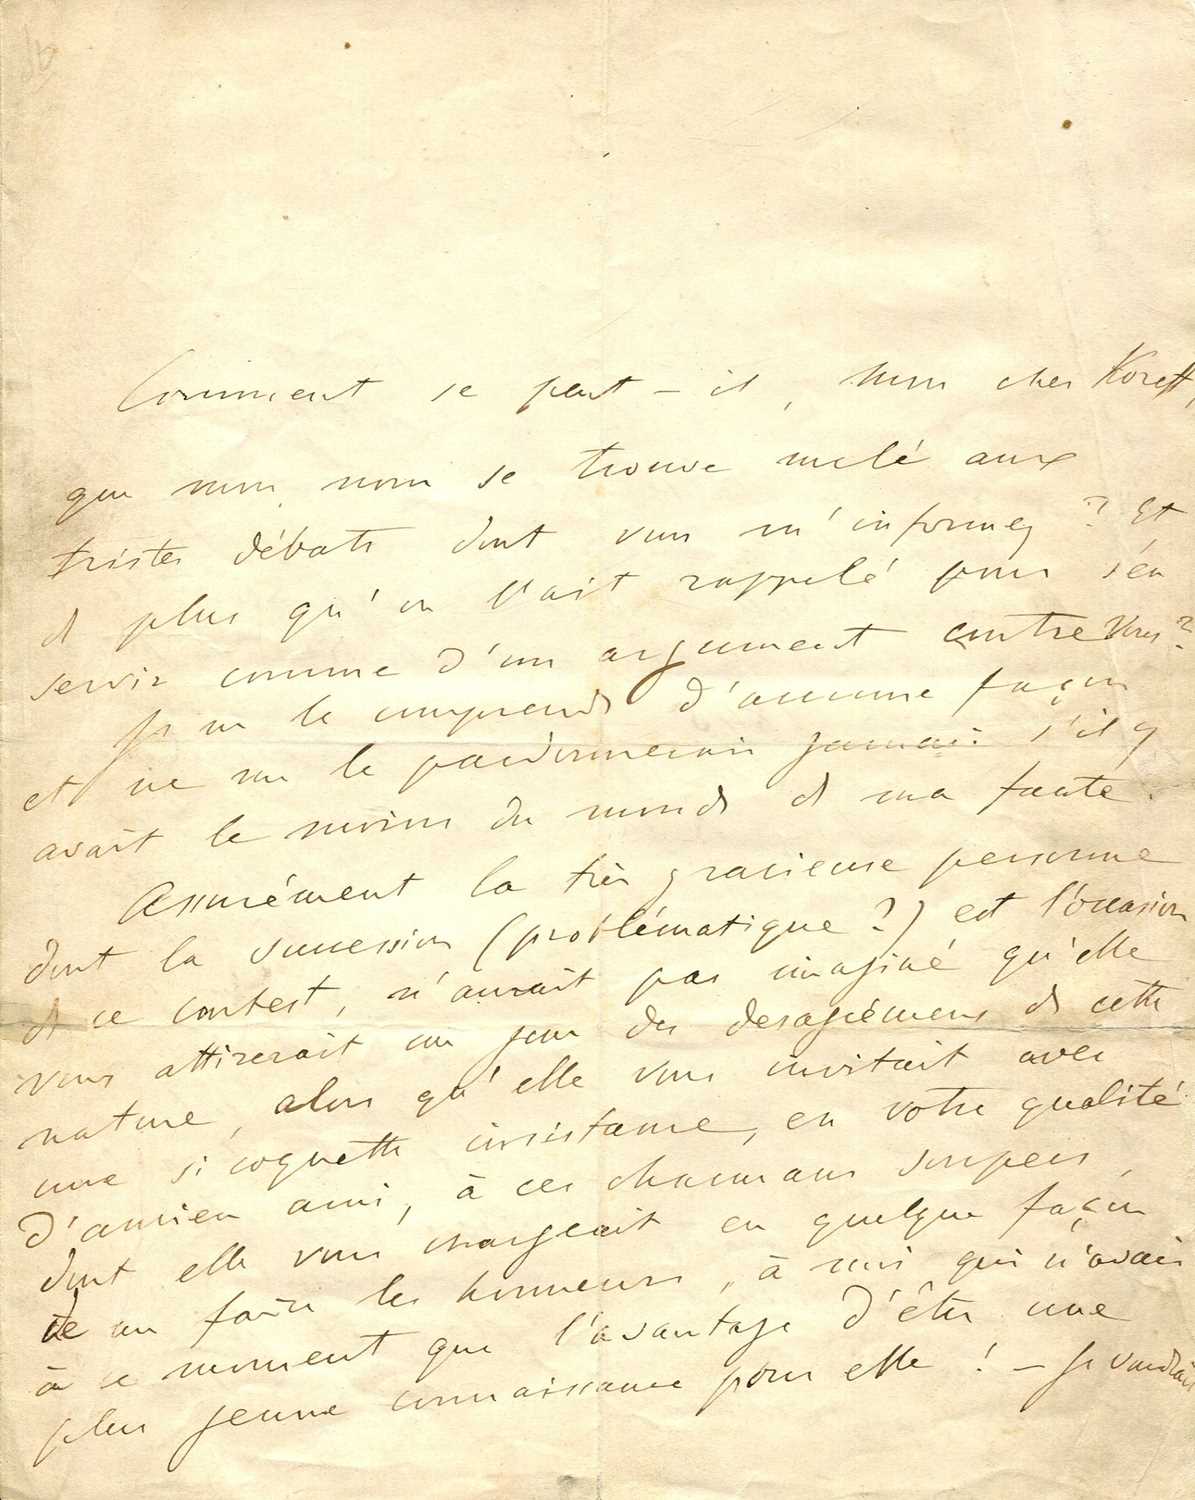 Comment se peut-il, mon cher Koreff,
que mon nom se trouve melé aux
tristes débats dont vous m'informez ? Et
de plus qu'on l'ait rappelé pour s'en
servir comme d'un argument contre Vous ?
Je ne le comprends d'aucune façon
et ne me le pardonnerais jamais s'il y
avait le moins du monde de ma faute.
Assurément la très gracieuse personne
dont la succession (problématique ?) est l'occasion
de ce contest, n'aurait pas imaginé qu'elle
vous attirerait un jour des desagrémens de cette
nature, alors qu'elle vous invitait avec
une si coquette insistance, en votre qualité
d'ancien ami, à ces charmans soupers,
dont elle vous chargeait en quelque façon
de me faire les honneurs, à moi qui n'avais
à ce moment que l'avantage d'être une
plus jeune connaissance pour elle ! — Je voudrais